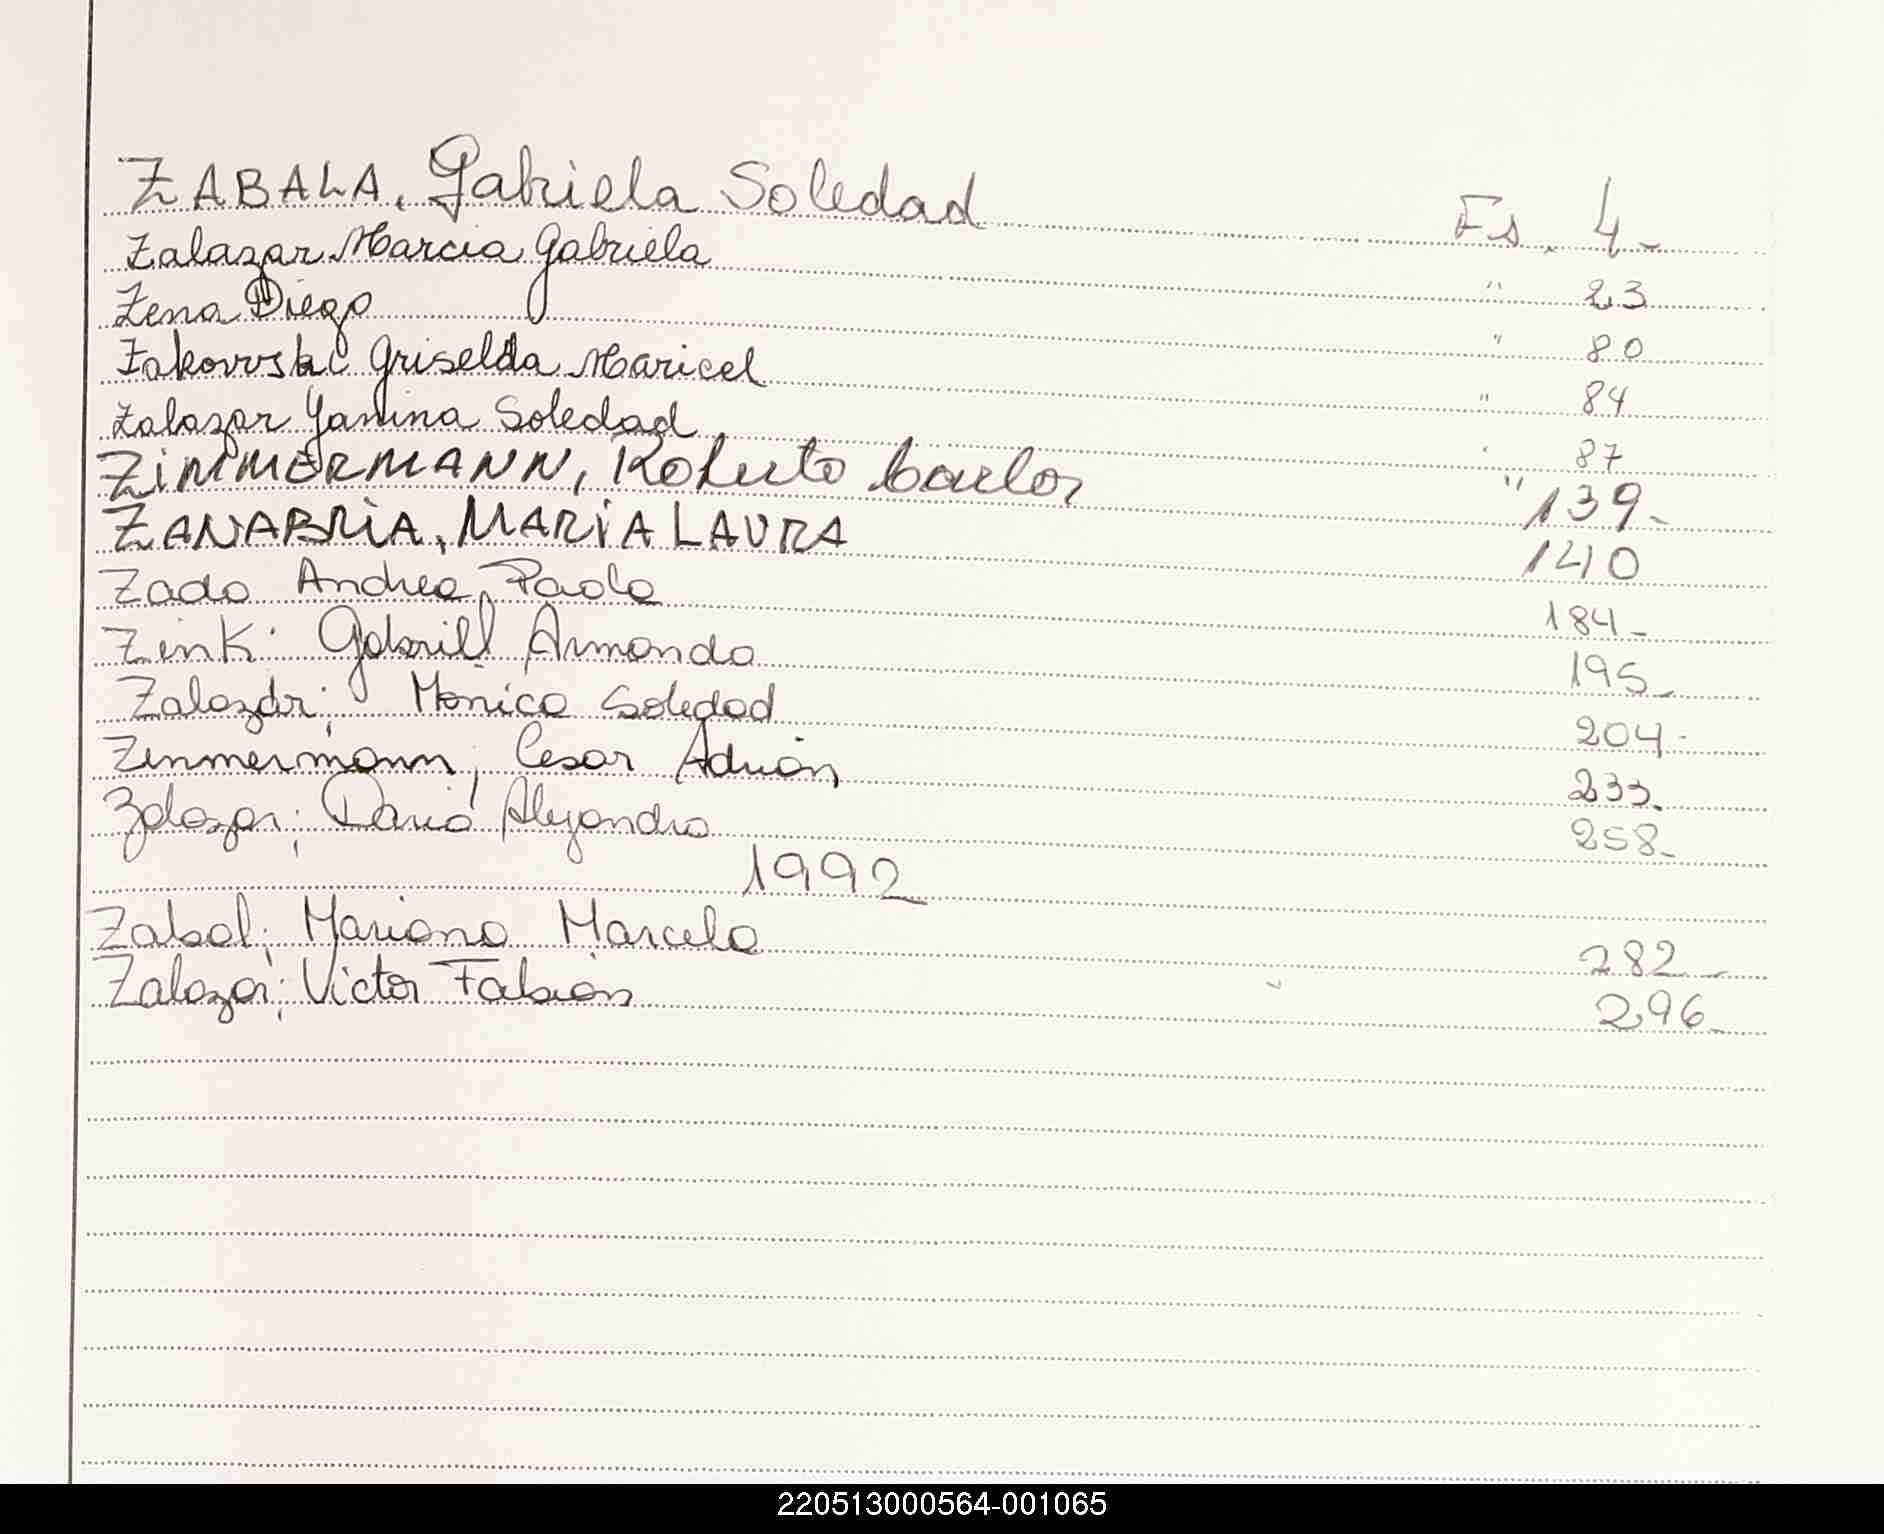 ZABALA, Gabriela Soledad Fs. 4-
Zalazar Marcia Gabriela " 23
Zena Diego " 80
Zakovvski Griselda Maricel " 84
Zalazar Yanina Soledad " 87
ZiMMERMANN, Roberto Carlos " 139-
ZANABRiA, MARiA LAURA 140
Zado Andrea Paola 184-
Zink: Gabriel Armando 195-
Zalazar; Monica Soledad 204-
Zimmermann, Cesar Adrián 233.
Zalazar; Dario Alejandro 258-
1992
Zabal; Mariano Marcelo 282-
Zalazar; Victor Fabián 296-
220513000564-001065